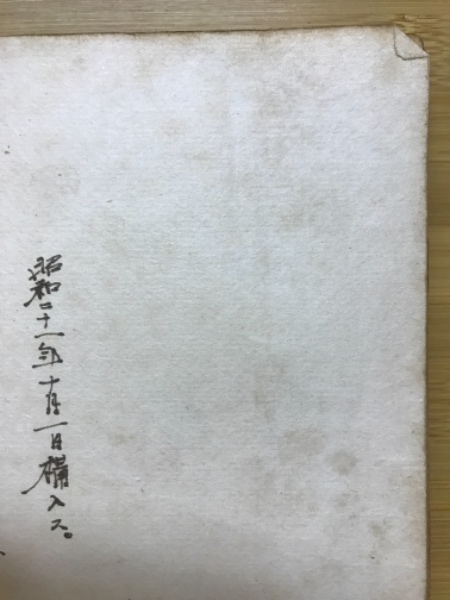 昭和二十一年十月一日購入ス。